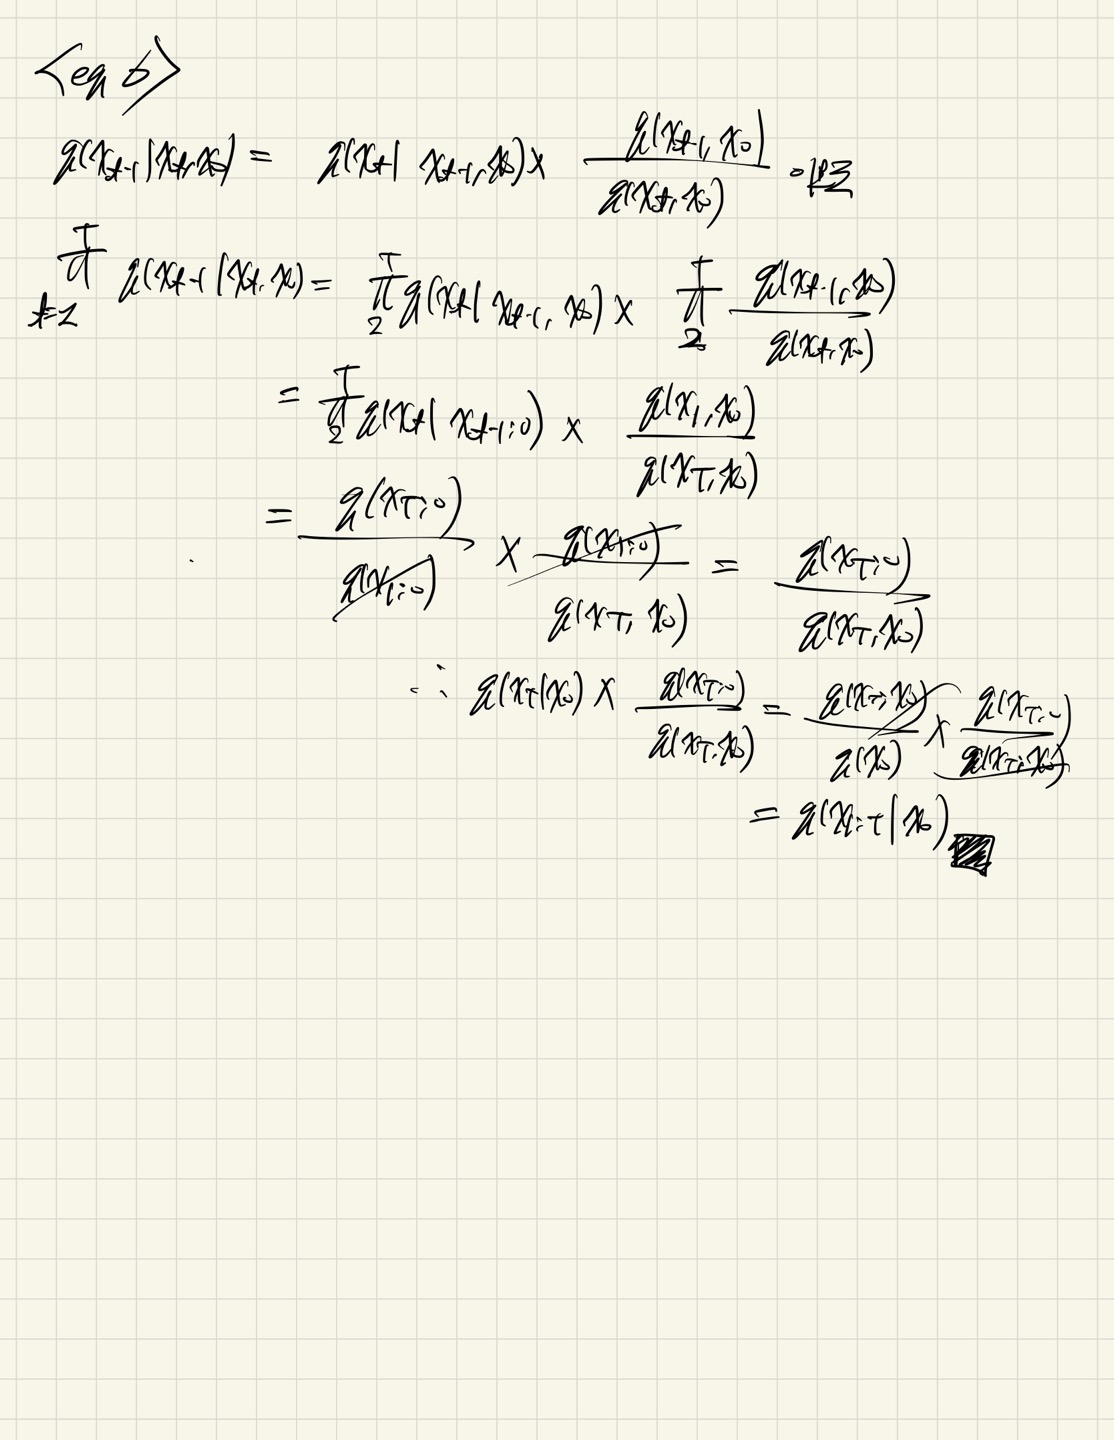 <eq 6>
q(x_{t-1}|x_t,x_0) = q(x_t|x_{t-1},x_0) × q(x_{t-1},x_0) / q(x_t,x_0)
∏_{t=2}^{T} q(x_{t-1}|x_t,x_0) = ∏_{2}^{T} q(x_t|x_{t-1},x_0) × ∏_{2}^{T} q(x_{t-1},x_0) / q(x_t,x_0)
= ∏_{2}^{T} q(x_t|x_{t-1:0}) × q(x_1,x_0) / q(x_T,x_0)
= q(x_{T:0}) / q(x_{1:0}) × q(x_{1:0}) / q(x_T,x_0) = q(x_{T:0}) / q(x_T,x_0)
∴ q(x_T|x_0) × q(x_{T:0}) / q(x_T,x_0) = q(x_T,x_0) / q(x_0) × q(x_{T:0}) / q(x_T,x_0)
= q(x_{1:T}|x_0)